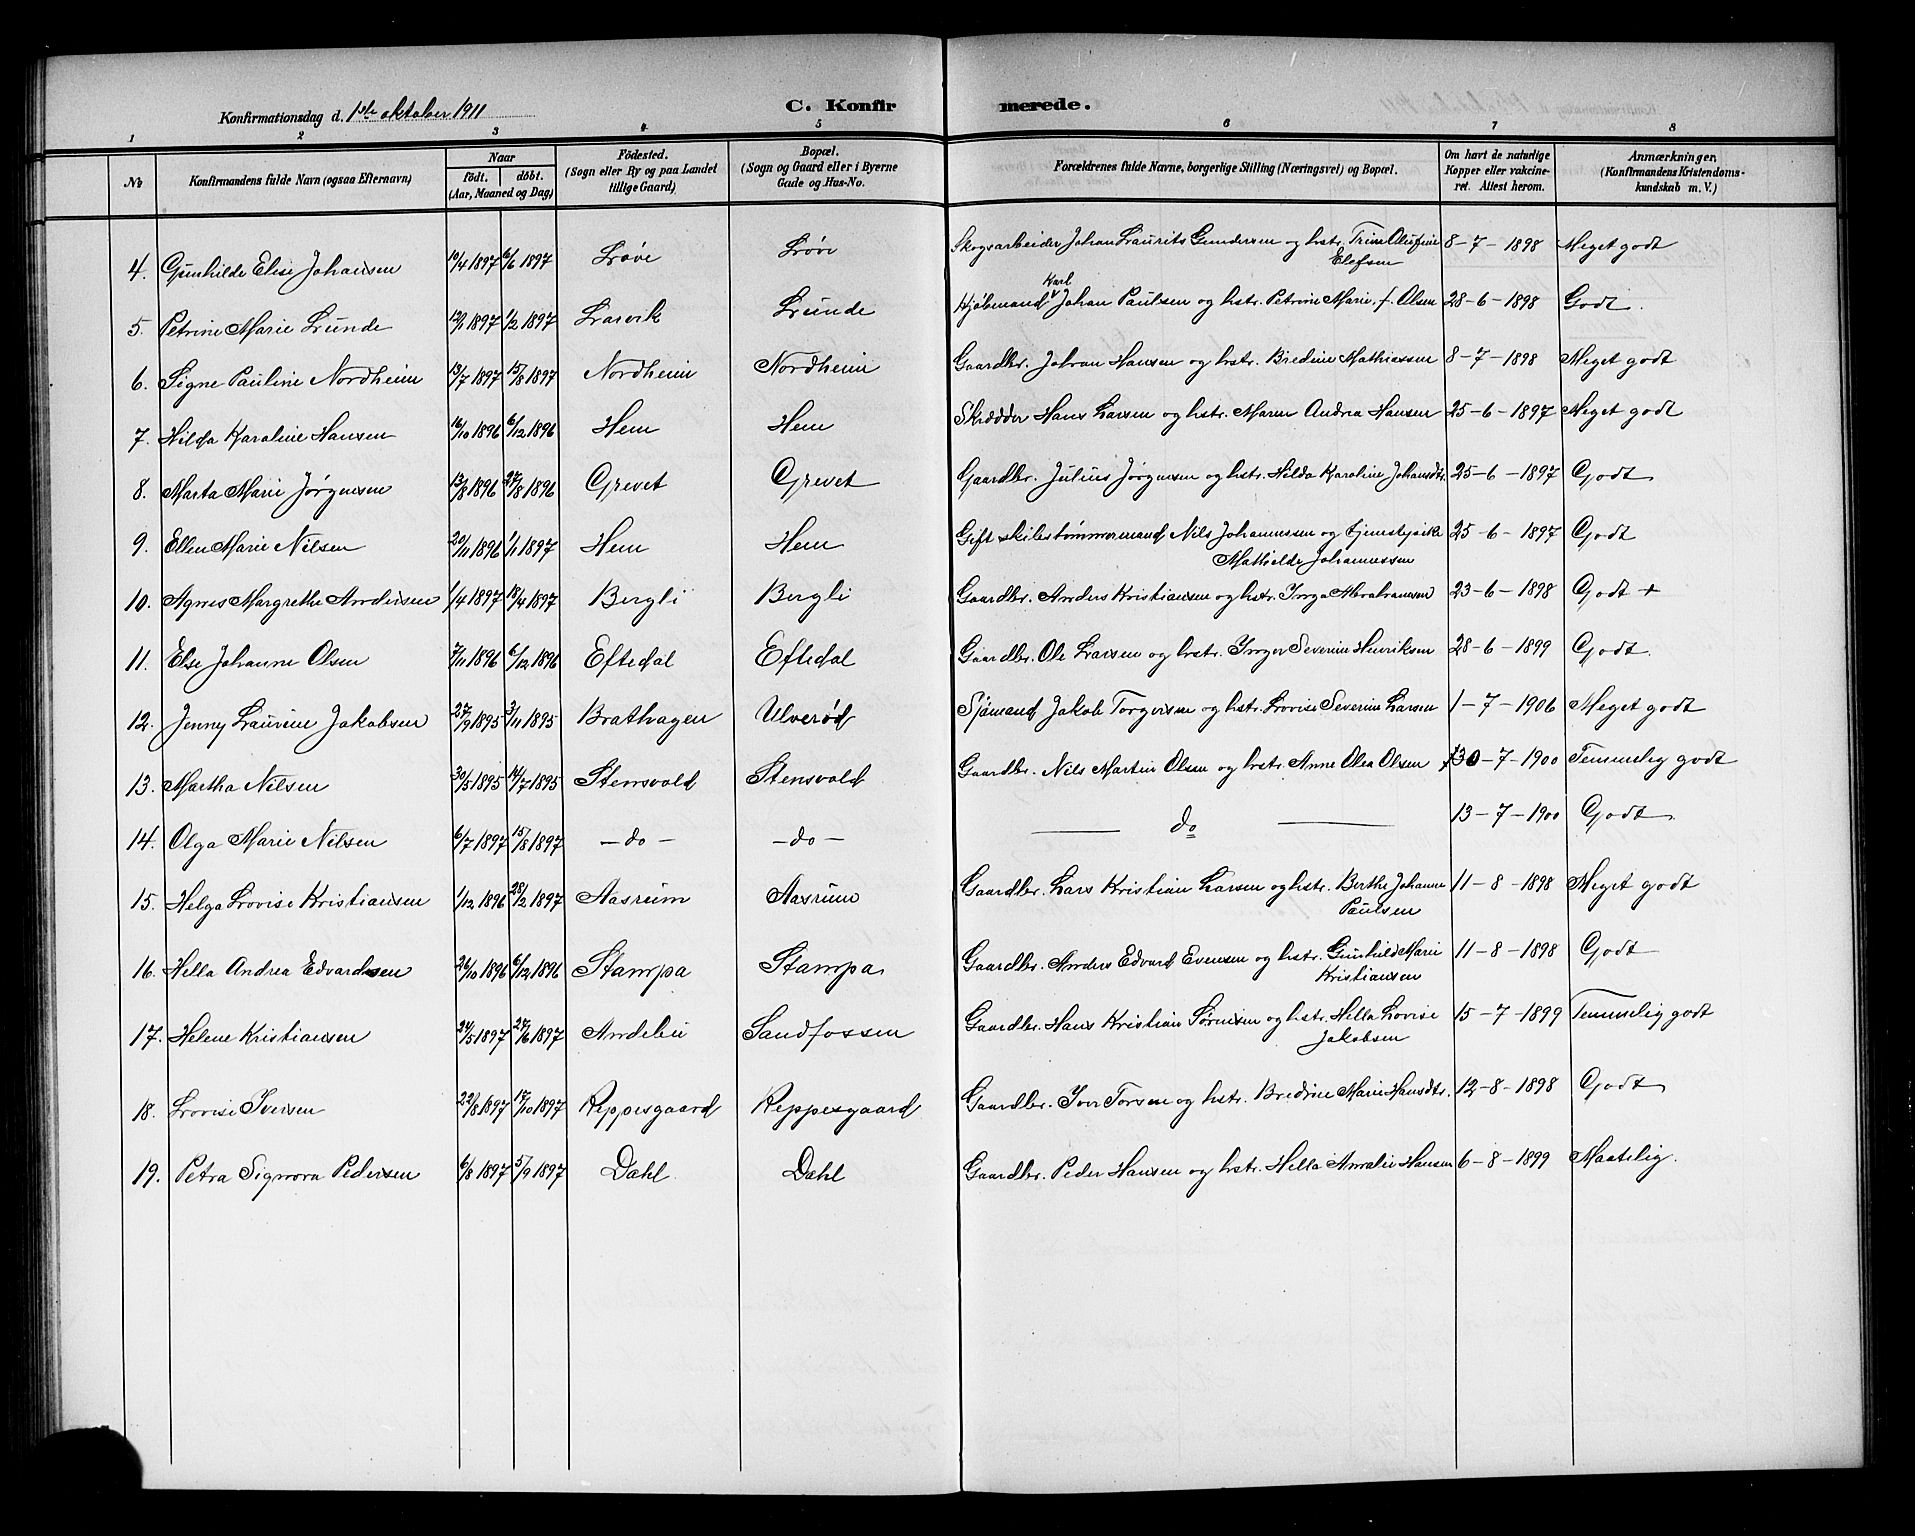 Konfirmationsdag d. 1ste oktober 1911
C. Konfirmerede.
1 2 3 4 5 6 7 8
No
Konfirmandens fulde Navn (ogsaa Efternavn)
Naar
födt. döbt.
(Aar, Maaned og Dag)
Födested.
(Sogn eller By og paa Landet
tillige Gaard)
Bopæl.
(Sogn og Gaard eller i Byerne
Gade og Hus-No.
Forældrenes fulde Navne, borgerlige Stilling (Næringsvei) og Bopæl.
Om havt de naturlige
Kopper eller vakcine-
ret. Attest herom.
Anmærkninger
(Konfirmandens Kristendoms-
kundskab m. V.)
4. Gunhilde Elise Johansen 10/4 1897 6/6 1897 Løve Løve Skogsarbeider Johan Laurits Gundersen og hstr. Trine Olufine Elefsen 8-7-1898 Meget godt
5. Petrine Marie Lunde 12/1 1897 1/2 1897 Larvik Lunde Hjøbmand Karl Johan Paulsen og hstr. Petrine Marie, f. Olsen 28-6-1898 Godt.
6. Signe Pauline Nordheim 13/7 1897 15/8 1897 Nordheim Nordheim Gaardbr. Johan Hansen og hstr. Bredine Mathiassen 8-7-1898 Meget godt
7. Hilda Karoline Hansen 16/10 1896 6/12 1896 Hem Hem Skrædder Hans Larsen og hstr. Maren Andrea Hansen 25-6-1897 Meget godt
8. Marta Marie Jørgensen 13/8 1896 27/8 1896 Grevet Grevet Gaardbr. Julius Jørgensen og hstr. Hilda Karoline Johansdtr. 25-6-1897 Godt
9. Ellen Marie Nilsen 20/11 1896 1/1 1897 Hem Hem Gift skibstømmermand Nils Johannessen og tjenestepike Mathilde Johannessen 25-6-1897 Godt
10. Agnes Margrethe Andersen 1/4 1897 18/4 1897 Bergli Bergli Gaardbr. Anders Kristiansen og hstr. Inga Abrahamsen 23-6-1898 Godt +
11. Else Johanne Olsen 7/11 1896 6/12 1896 Eftedal Eftedal Gaardbr. Ole Larsen og hstr. Inger Severine Henriksen 28-6-1899 Godt.
12. Jenny Laurine Jakobsen 27/9 1895 3/11 1895 Brathagen Ulverød Sjømand Jakob Torgersen og hstr. Lovise Severine Larsen 1-7-1906 Meget godt
13. Martha Nilsen 30/5 1895 14/7 1895 Stensvold Stensvold Gaardbr. Nils Martin Olsen og hstr. Anne Olea Olsen 30-7-1900 Temmelig godt
14. Olga Marie Nilsen 6/7 1897 15/8 1897 -do- -do- do 13-7-1900 Godt
15. Helga Lovise Kristiansen 1/12 1896 28/2 1897 Aasrum Aasrum Gaardbr. Lars Kristian Larsen og hstr. Berthe Johanne Paulsen 11-8-1898 Meget godt
16. Hella Andrea Edvardsen 26/10 1896 6/12 1896 Stampa Stampa Gaardbr. Anders Edvard Evensen og hstr. Gunhild Marie Kristiansen 11-8-1898 Godt
17. Helene Kristiansen 24/5 1897 27/6 1897 Andebu Sandfossen Gaardbr. Hans Kristian Sørensen og hstr. Hella Lovise Jakobsen 15-7-1899 Temmelig godt
18. Lovise Iversen 22/8 1897 17/10 1897 Reppesgaard Reppesgaard Gaardbr. Iver Torsen og hstr. Bredine Marie Hansdtr. 12-8-1898 Godt
19. Petra Signora Pedersen 6/8 1897 5/9 1897 Dahl Dahl Gaardbr. Peder Hansen og hstr. Hella Amalie Hansen 6-8-1899 Maatelig.